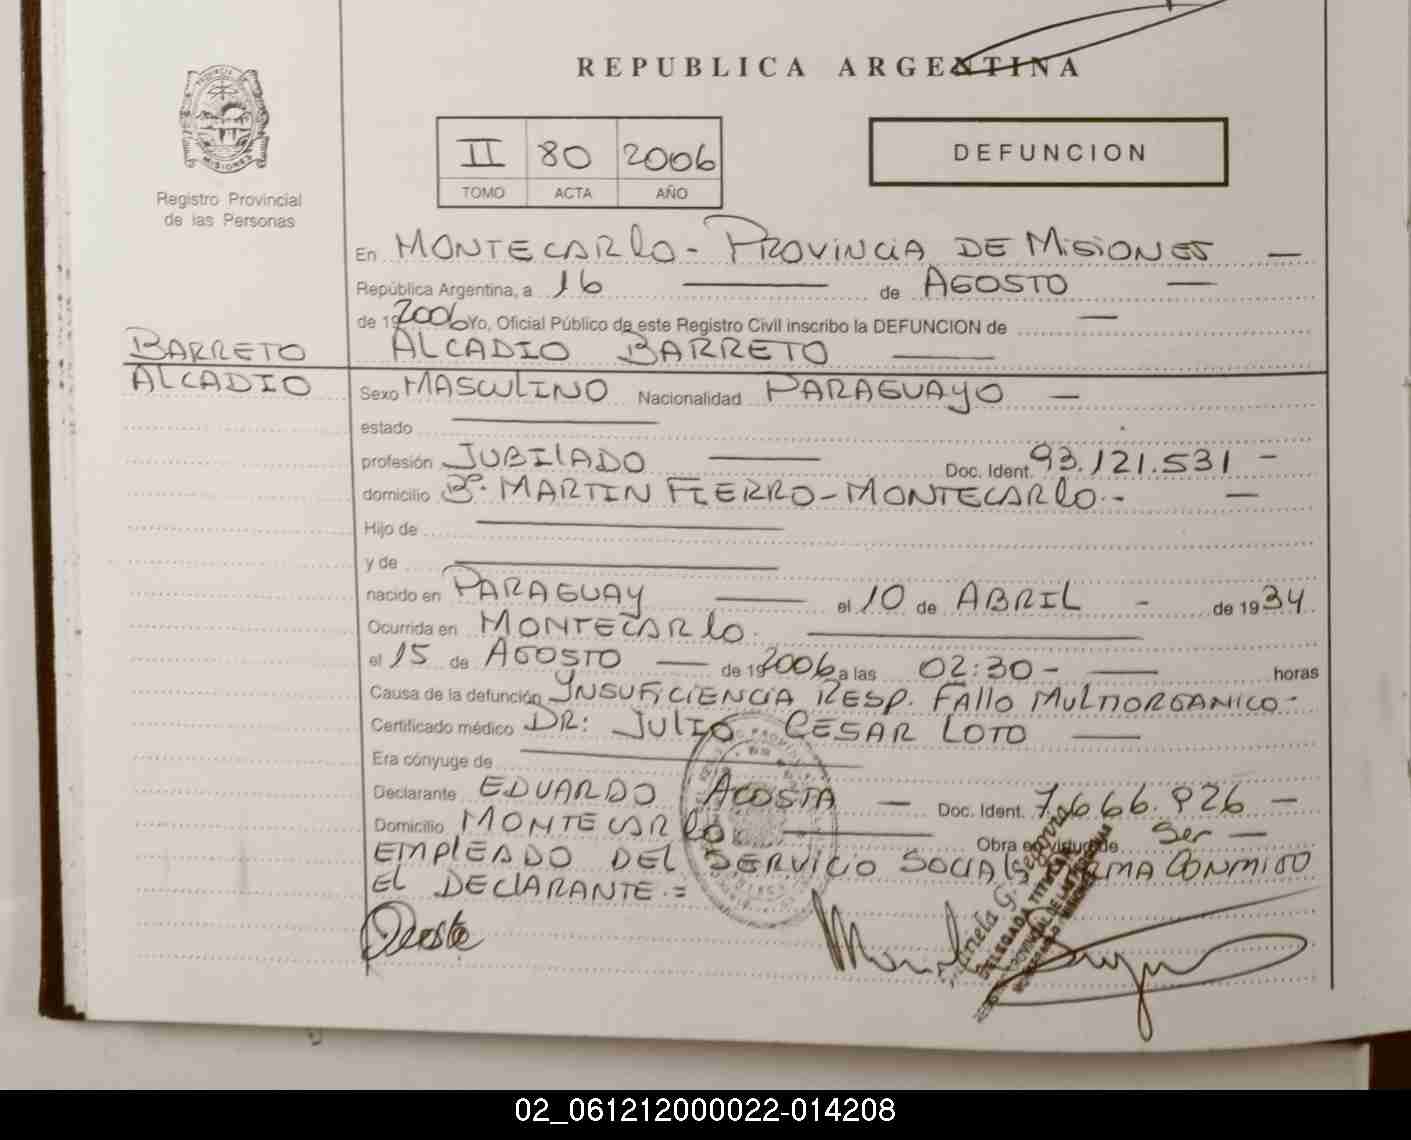 REPUBLICA ARGENTINA
PROVINCIA
MISIONES
Registro Provincial
de las Personas
II 80 2006
TOMO ACTA AÑO
DEFUNCION
En MONTECARLO - PROVINCIA DE MISIONES —
República Argentina, a 16 — de AGOSTO —
de 19 2006 Yo, Oficial Público de este Registro Civil inscribo la DEFUNCION de —
BARRETO ALCADIO BARRETO —
ALCADIO Sexo MASCULINO Nacionalidad PARAGUAYO —
estado —
profesión JUBILADO — Doc. Ident. 93.121.531 -
domicilio Bº. MARTIN FIERRO - MONTECARLO.- —
Hijo de —
y de —
nacido en PARAGUAY — el 10 de ABRIL - de 1934
Ocurrida en MONTECARLO. —
el 15 de AGOSTO — de 19 2006 a las 02:30 - — horas
Causa de la defunción INSUFICIENCIA RESP. FALLO MULTIORGANICO -
Certificado médico DR: JULIO CESAR LOTO —
Era cónyuge de —
Declarante EDUARDO ACOSTA — Doc. Ident. 7.666.926 -
Domicilio MONTECARLO — Obra en virtud de Ser —
EMPLEADO DEL SERVICIO SOCIAL FIRMA CONMIGO
EL DECLARANTE.=
DELEGADA TITULAR
02_061212000022-014208